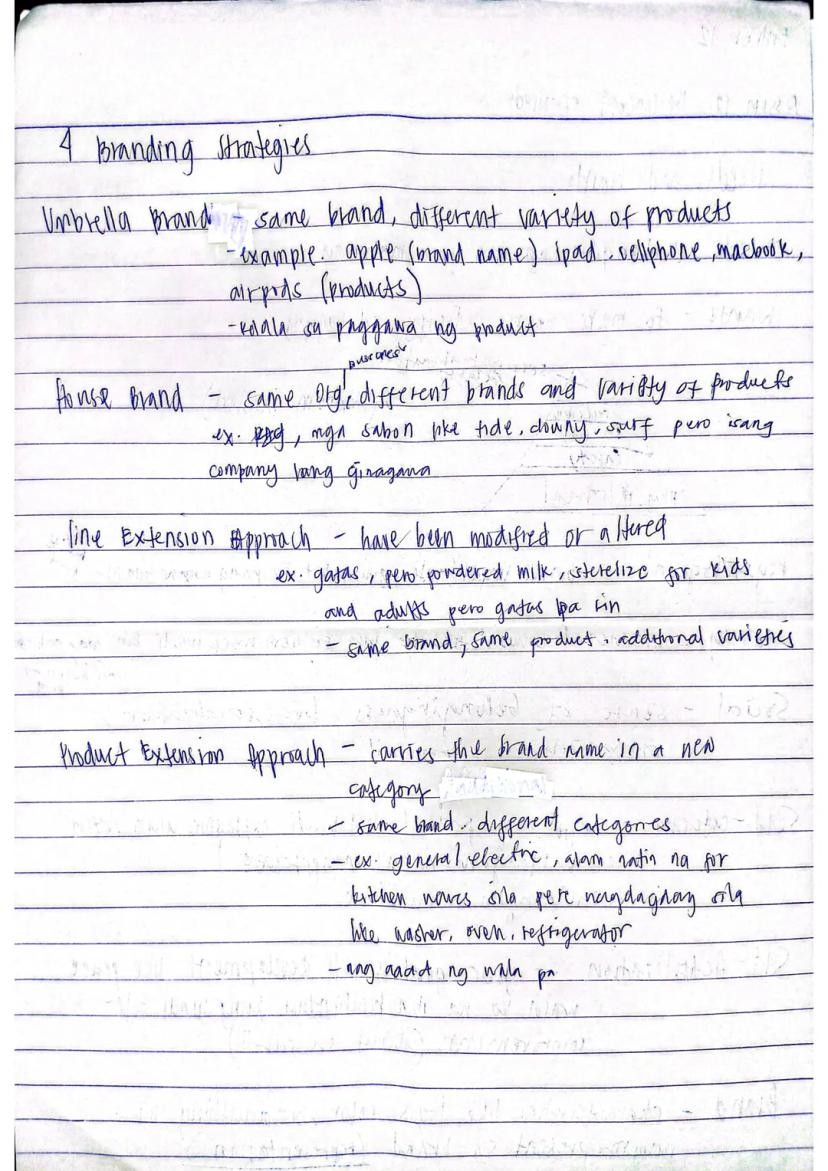 4 Branding Strategies
Umbrella Brand - same brand, different variety of products
- example. apple (brand name) Ipad, cellphone, macbook,
airpods (products)
- kilala sa paggawa ng product
House Brand - same Org, different brands and variety of products
ex. mga sabon like tide, downy, surf pero isang
company lang ginagawa
line Extension Approach - have been modified or altered
ex. gatas, pero powdered milk, sterelize for kids
and adults pero gatas pa rin
- same brand, same product, additional varieties
Product Extension Approach - carries the brand name in a new
category
- same brand, different categories
- ex. general electric, alam natin na for
kitchen wares sila pero nagdagdag sila
like washer, oven, refrigerator
- nag aadd ng wala pa